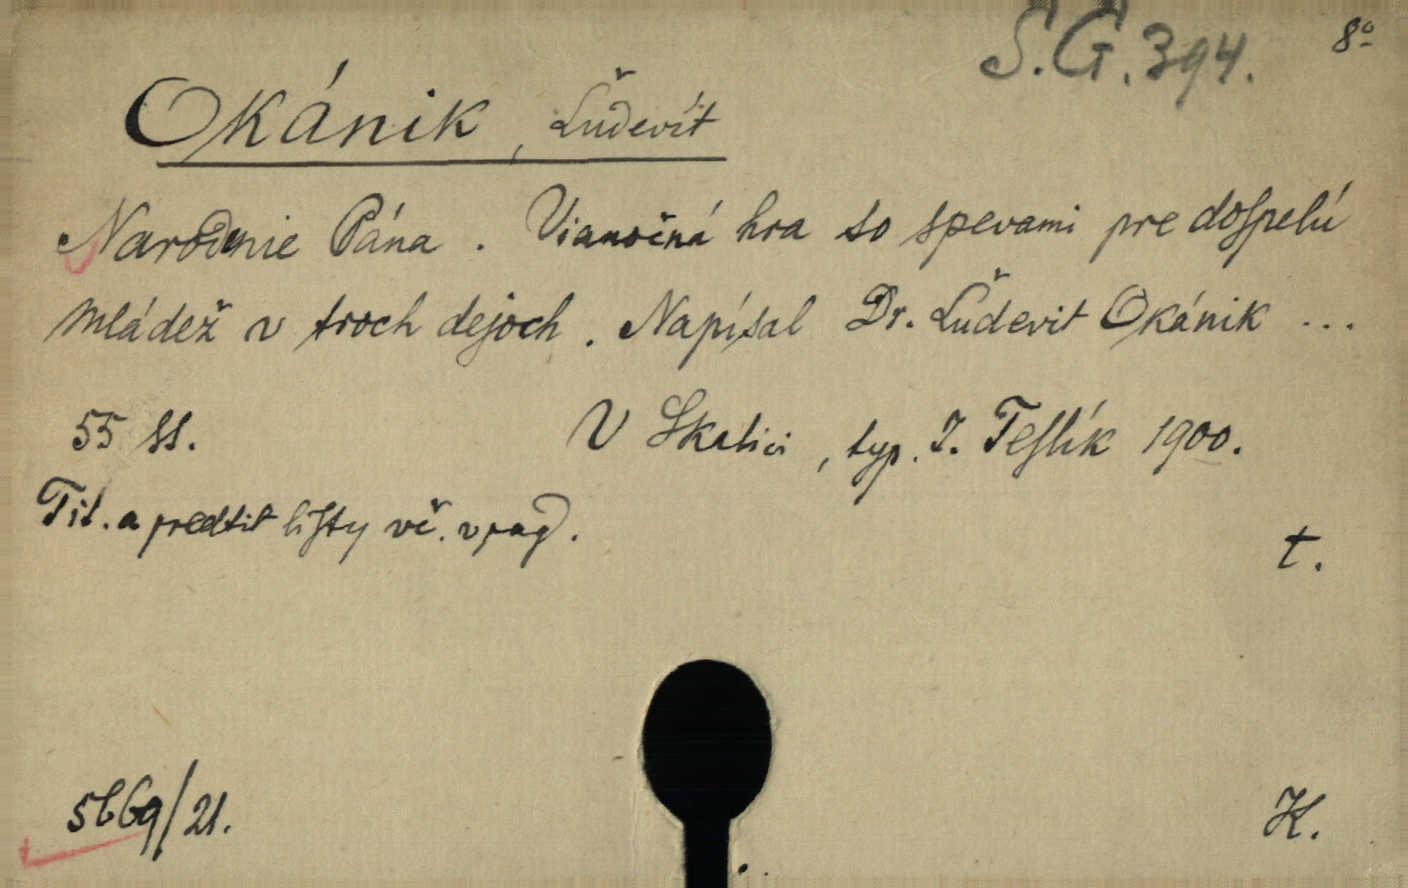 S.G.394. 8º
Okánik, Ľudevít
Narodenie Pána. Vianočná hra so spevami pre dospelú
mládež v troch dejoch. Napísal Dr. Ľudevit Okánik ...
55 ss. V Skalici, typ. J. Teslík 1900.
Tit. a predtit listy vč. v pag.
t.
5669/21. K.